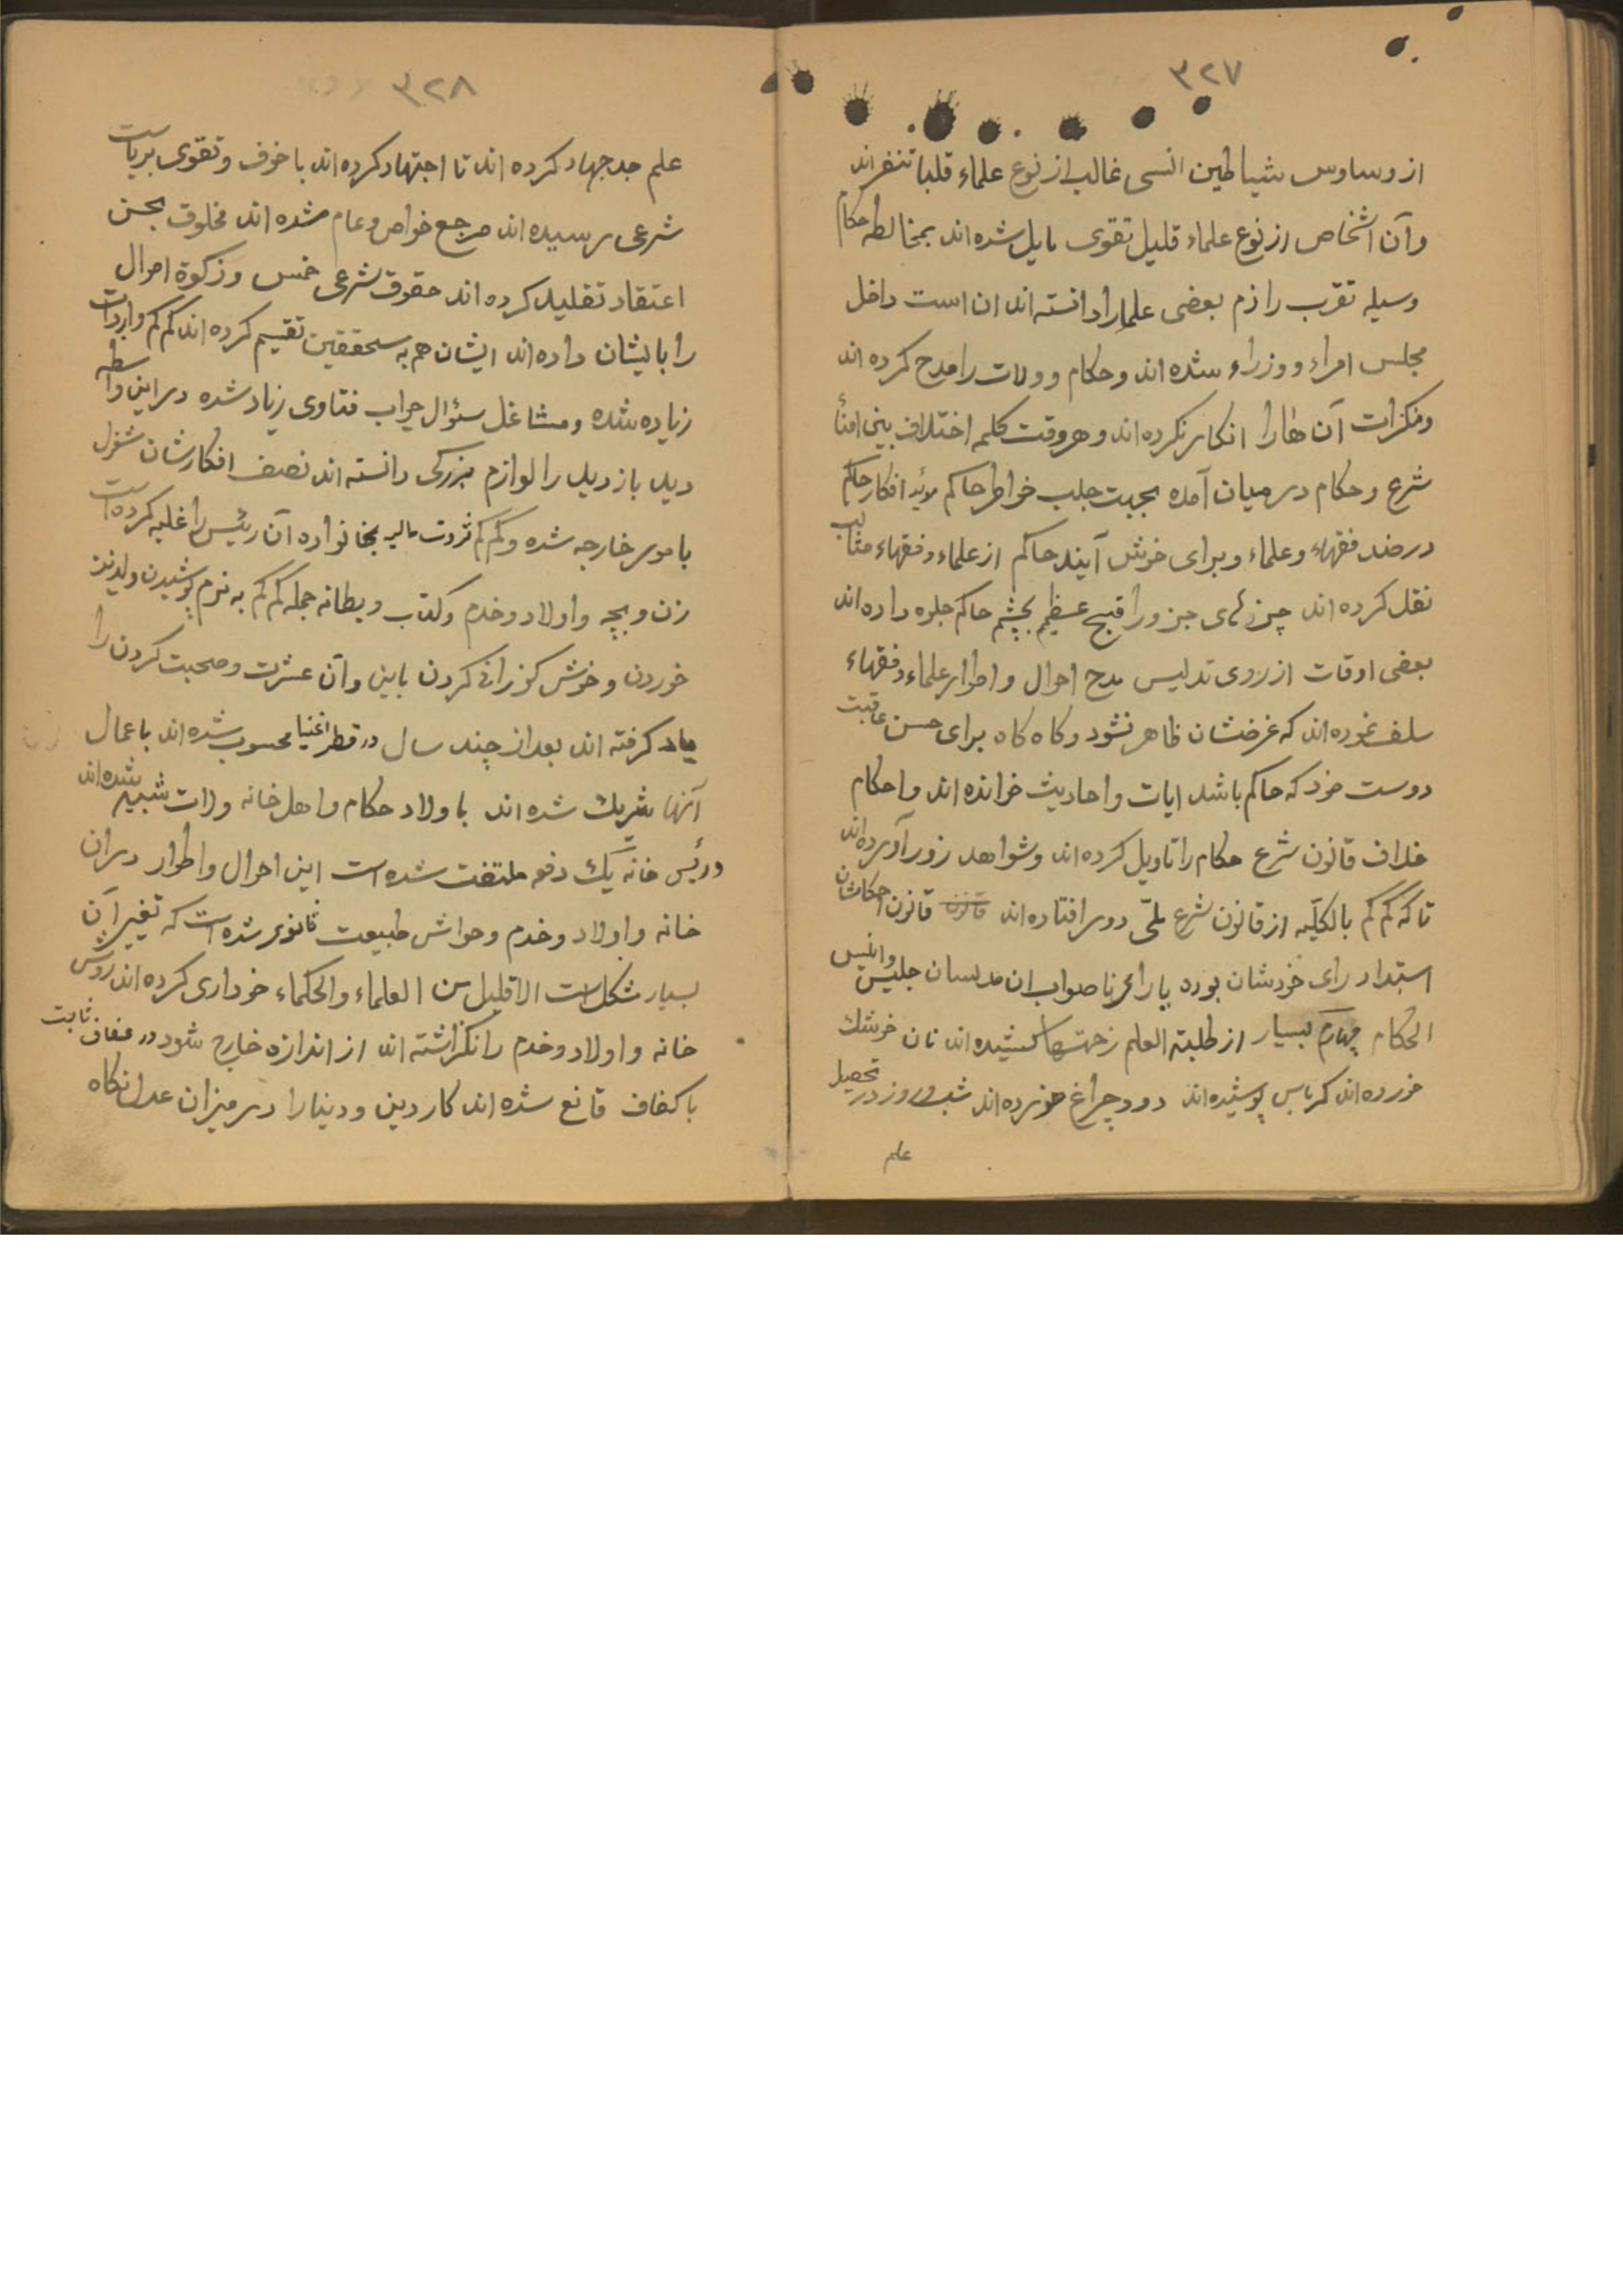 ٣٢٧
از وساوس شیاطین انسی غالب از نوع علماء قلبا تنفر اند
و آن اشخاص از نوع علماء قلیل تقوی مایل شده اند بمخالطه حکام
وسیله تقرب را ذم بعضی علما را دانسته اند ان است داخل
مجلس امراء و وزراء شده اند و حکام و ولات را مدح کرده اند
ومنکرات آن ها را انکار نکرده اند و هر وقت کلمه اختلاف بین امناأ
شرع و حکام در میان آمده بجهت جلب خواطر حاکم موئید افکار حاکم
در ضد فقهاء و علماء و برای خوش آیند حاکم از علماء و فقهاء مثالب
نقل کرده اند چیزهای جزو را قبیح عظیم بچشم حاکم جلوه داده اند
بعضی اوقات از روی تدلیس مدح احوال و اطوار علماء و فقهاء
سلف نموده اند که غرضشان ظاهر نشود و کاه کاه برای حسن عاقبت
دوست خود که حاکم باشد ایات و احادیث خوانده اند و احکام
خلاف قانون شرع حکام را تاویل کرده اند و شواهد زور آورده اند
تا که کم کم بالکلّیه از قانون شرع ملّی دور افتاده اند قانون قانون احکامشان
استبداد رای خودشان بوده یا را نا صواب ان مدلسان جلیس وانیس
الحکام چهارم بسیار از طلبته العلم زحمتها کشیده اند نان خوشك
خورده اند کرباس پوشیده اند دود چراغ خورده اند شب و روز در تحصیل
علم
٣٢٨
علم جد جهاد کرده اند تا اجتهاد کرده اند با خوف و تقوی بریاست
شرعی رسیده اند مرجع خواص و عام شده اند مخلوق بحسن
اعتقاد تقلید کرده اند حقوق شرعی خمس و زکوة اموال
را بایشان داده اند ایشان هم به مستحقین تقسیم کرده اند کم کم واردات
زیاده شده و مشاغل سئوال جواب فتاوی زیاد شده در این واسطه
دید بازدید را لوازم بزرکی دانسته اند نصف افکارشان مشغول
بامور خارجه شده و کم کم ثروت مالیه بخانواده آن رئیس را غلبه کرده است
زن و بچه و اولاد و خدم و کتاب و بطانه جمله کم کم به نرم پوشیدن و لذیذ
خوردن و خوش کوزرانی کردن باین و آن عشرت و صحبت کردن را
یاد کرفته اند بعد از چند سال در قطر اغنیا محسوب شده اند باعمال
آنها شریك شده اند با ولاد حکام و اهل خانه ولات شبیه شده اند
و رئیس خانه یك دفعه ملتفت شده است این احوال و اطوار در ان
خانه و اولاد و خدم و حواش طبیعت ثانویر شده است که تغیر آن
بسیار مشکل است الا قلیل من العلماء والحکماء خوداری کرده اند روش
خانه و اولاد و خدم را نکزاشته اند از اندازه خارج شود در عفاف ثابت
با کفاف قانع شده اند کار دین و دنیا را در میزان عدل نکاه